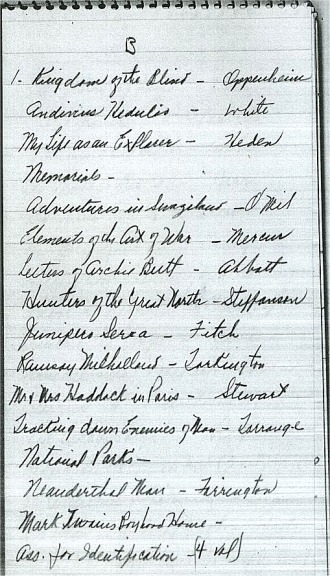 B
1. Kingdom of the Blind - Oppenheim
Andivius Hedulio - White
My Life as an Explorer - Heden
Memorials -
Adventures in Swaziland - O'Neil
Elements of the Art of War - Mercur
Letters of Archie Butt - Abbott
Hunters of the Great North - Steffanson
Junipero Serra - Fitch
Ramsay Milholland - Tarkington
Mr & Mrs Haddock in Paris - Stewart
Tracking down Enemies of Man - Torrance
National Parks -
Neanderthal Man - Farrington
Mark Twains Boyhood Home -
Ass. for Identification (4 vol)